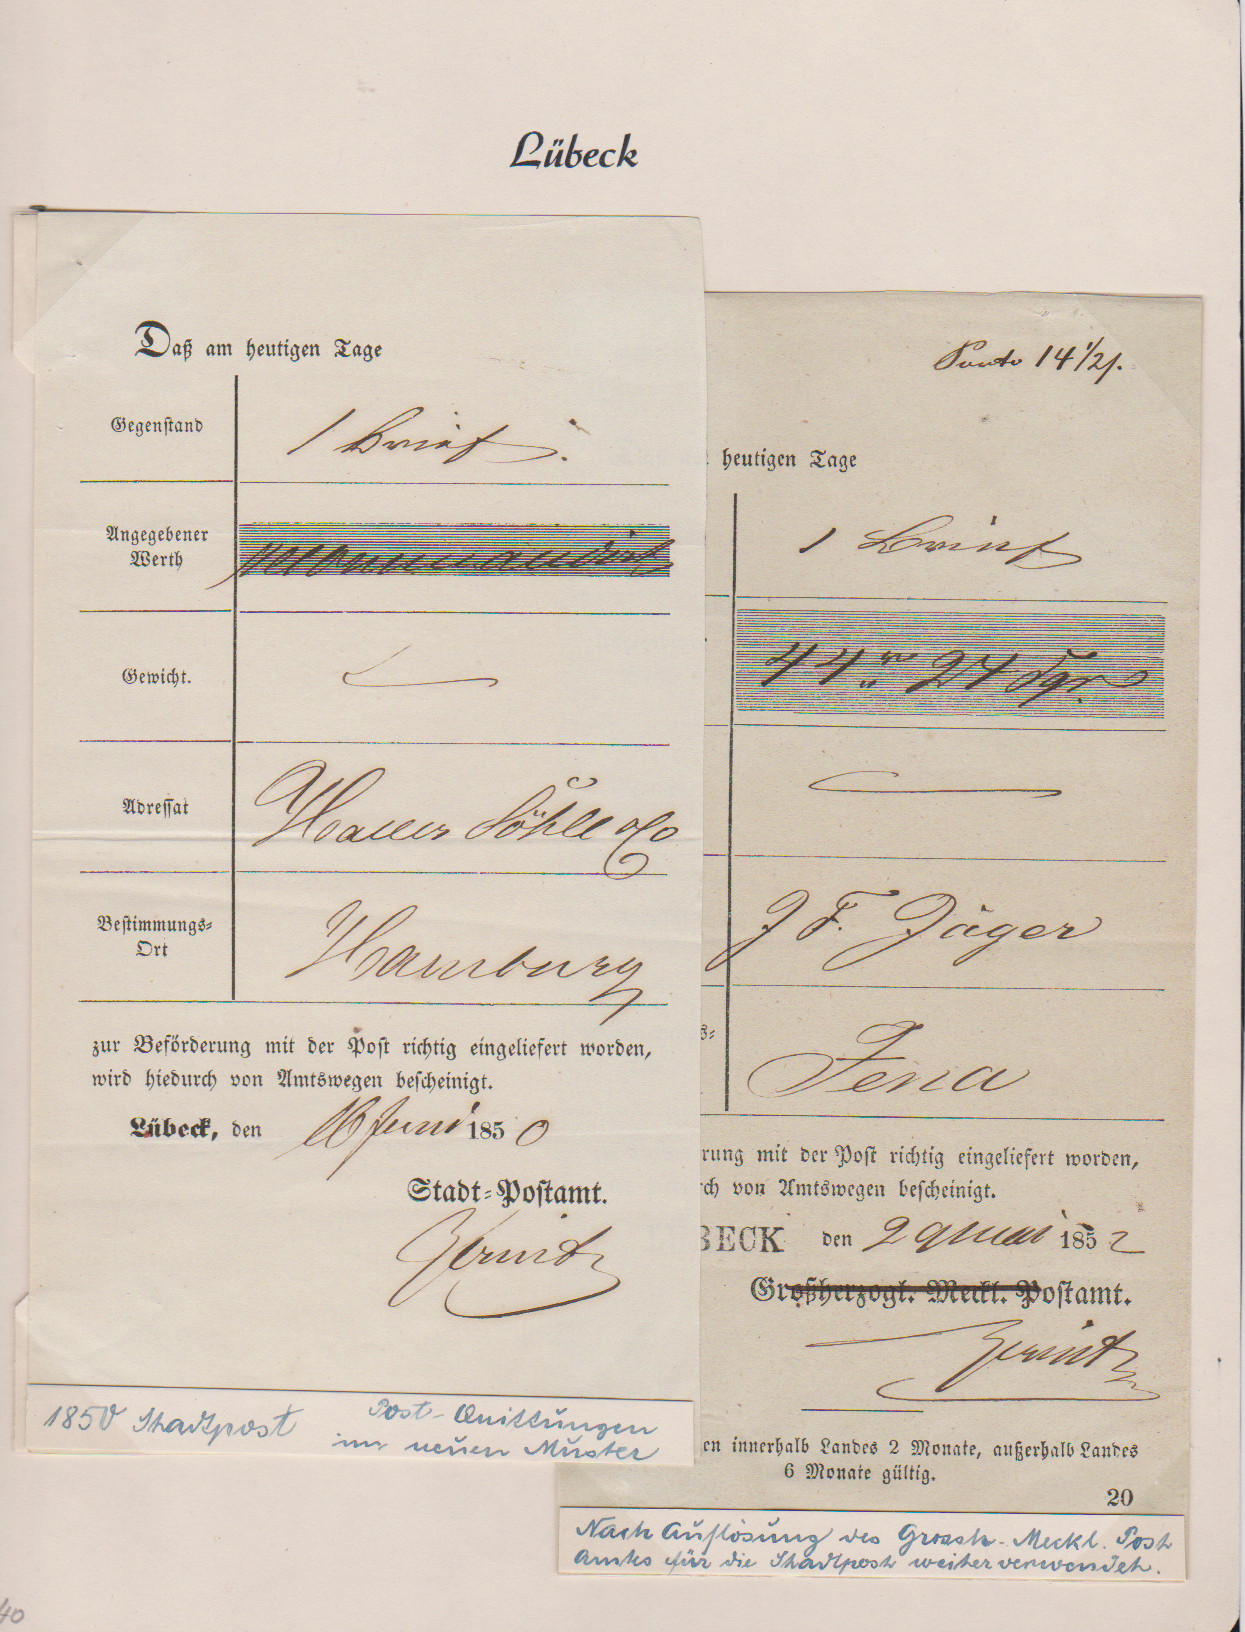 Lübeck
Daß am heutigen Tage
Gegenstand
1 Brief.
Angegebener
Werth
Gewicht.
Adressat
Haller Söhle & Co
Bestimmungs-
Ort
Hamburg
zur Beförderung mit der Post richtig eingeliefert worden,
wird hiedurch von Amtswegen bescheinigt.
Lübeck, den 16 Juni 1850
Stadt-Postamt.
1850 Stadtpost
Post-Quittungen
im neuen Muster
Porto 14 1/2
heutigen Tage
1 Brief
44 24 Sgr
J F. Jäger
s-
Jena
rung mit der Post richtig eingeliefert worden,
rch von Amtswegen bescheinigt.
BECK den 29 Mai 1852
Großherzogl. Meckl. Postamt.
en innerhalb Landes 2 Monate, außerhalb Landes
6 Monate gültig.
20
Nach Auflösung des Grossh. Meckl. Post
Amtes für die Stadtpost weiterverwendet.
40